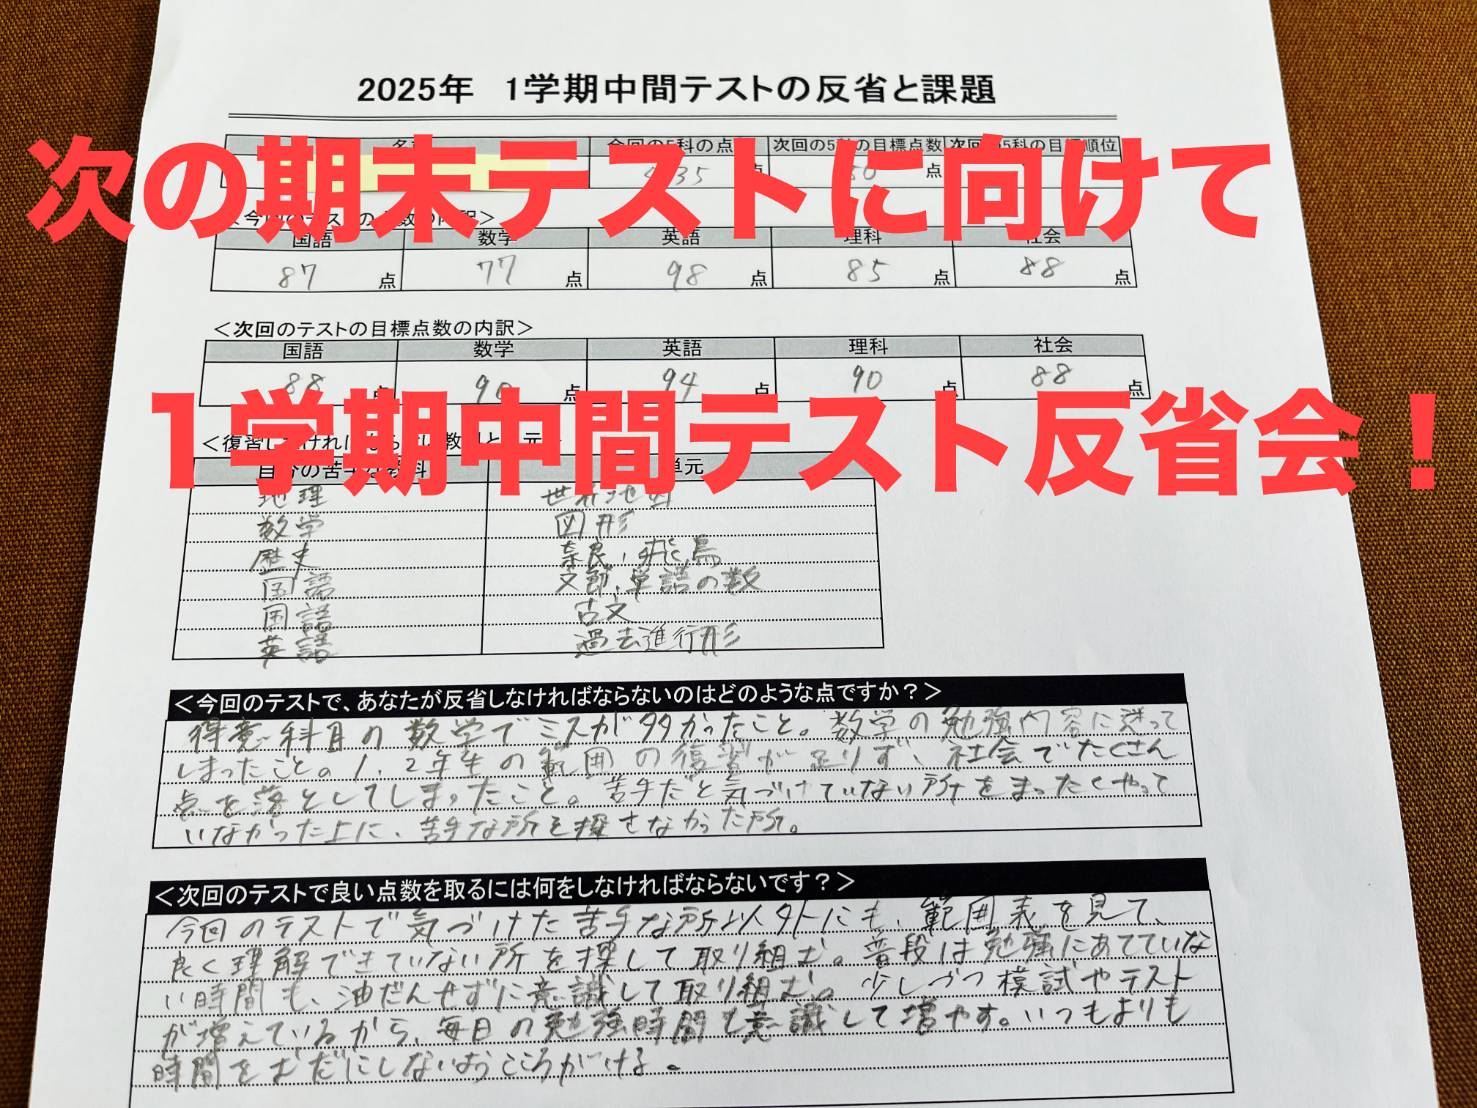 2025年 1学期中間テストの反省と課題
次の期末テストに向けて
今回の5科の点 次回の5科の目標点数 次回の5科の目標順位
435 点 点
国語 数学 英語 理科 社会
87点 77点 98点 85点 88点
＜次回のテストの目標点数の内訳＞
国語 数学 英語 理科 社会
88点 90点 94点 90点 88点
1学期中間テスト反省会！
単元
地理 世界地図
数学 図形
歴史 奈良,飛鳥
国語 文節,単語の数
国語 古文
英語 過去進行形
＜今回のテストで、あなたが反省しなければならないのはどのような点ですか？＞
得意科目の数学でミスが多かったこと。数学の勉強内容に迷って
しまったこと。1,2年生の範囲の復習が足りず、社会でたくさん
点を落としてしまったこと。苦手だと気づけていない所をまったくやって
いなかった上に、苦手な所を探さなかった所。
＜次回のテストで良い点数を取るには何をしなければならないです？＞
今回のテストで気づけた苦手な所以外にも、範囲表を見て、
良く理解できていない所を探して取り組む。普段は勉強にあてていな
い時間も、油だんせずに意識して取り組む。少しづつ模試やテスト
が増えているから、毎日の勉強時間も意識して増やす。いつもよりも
時間をむだにしないようこころがける。